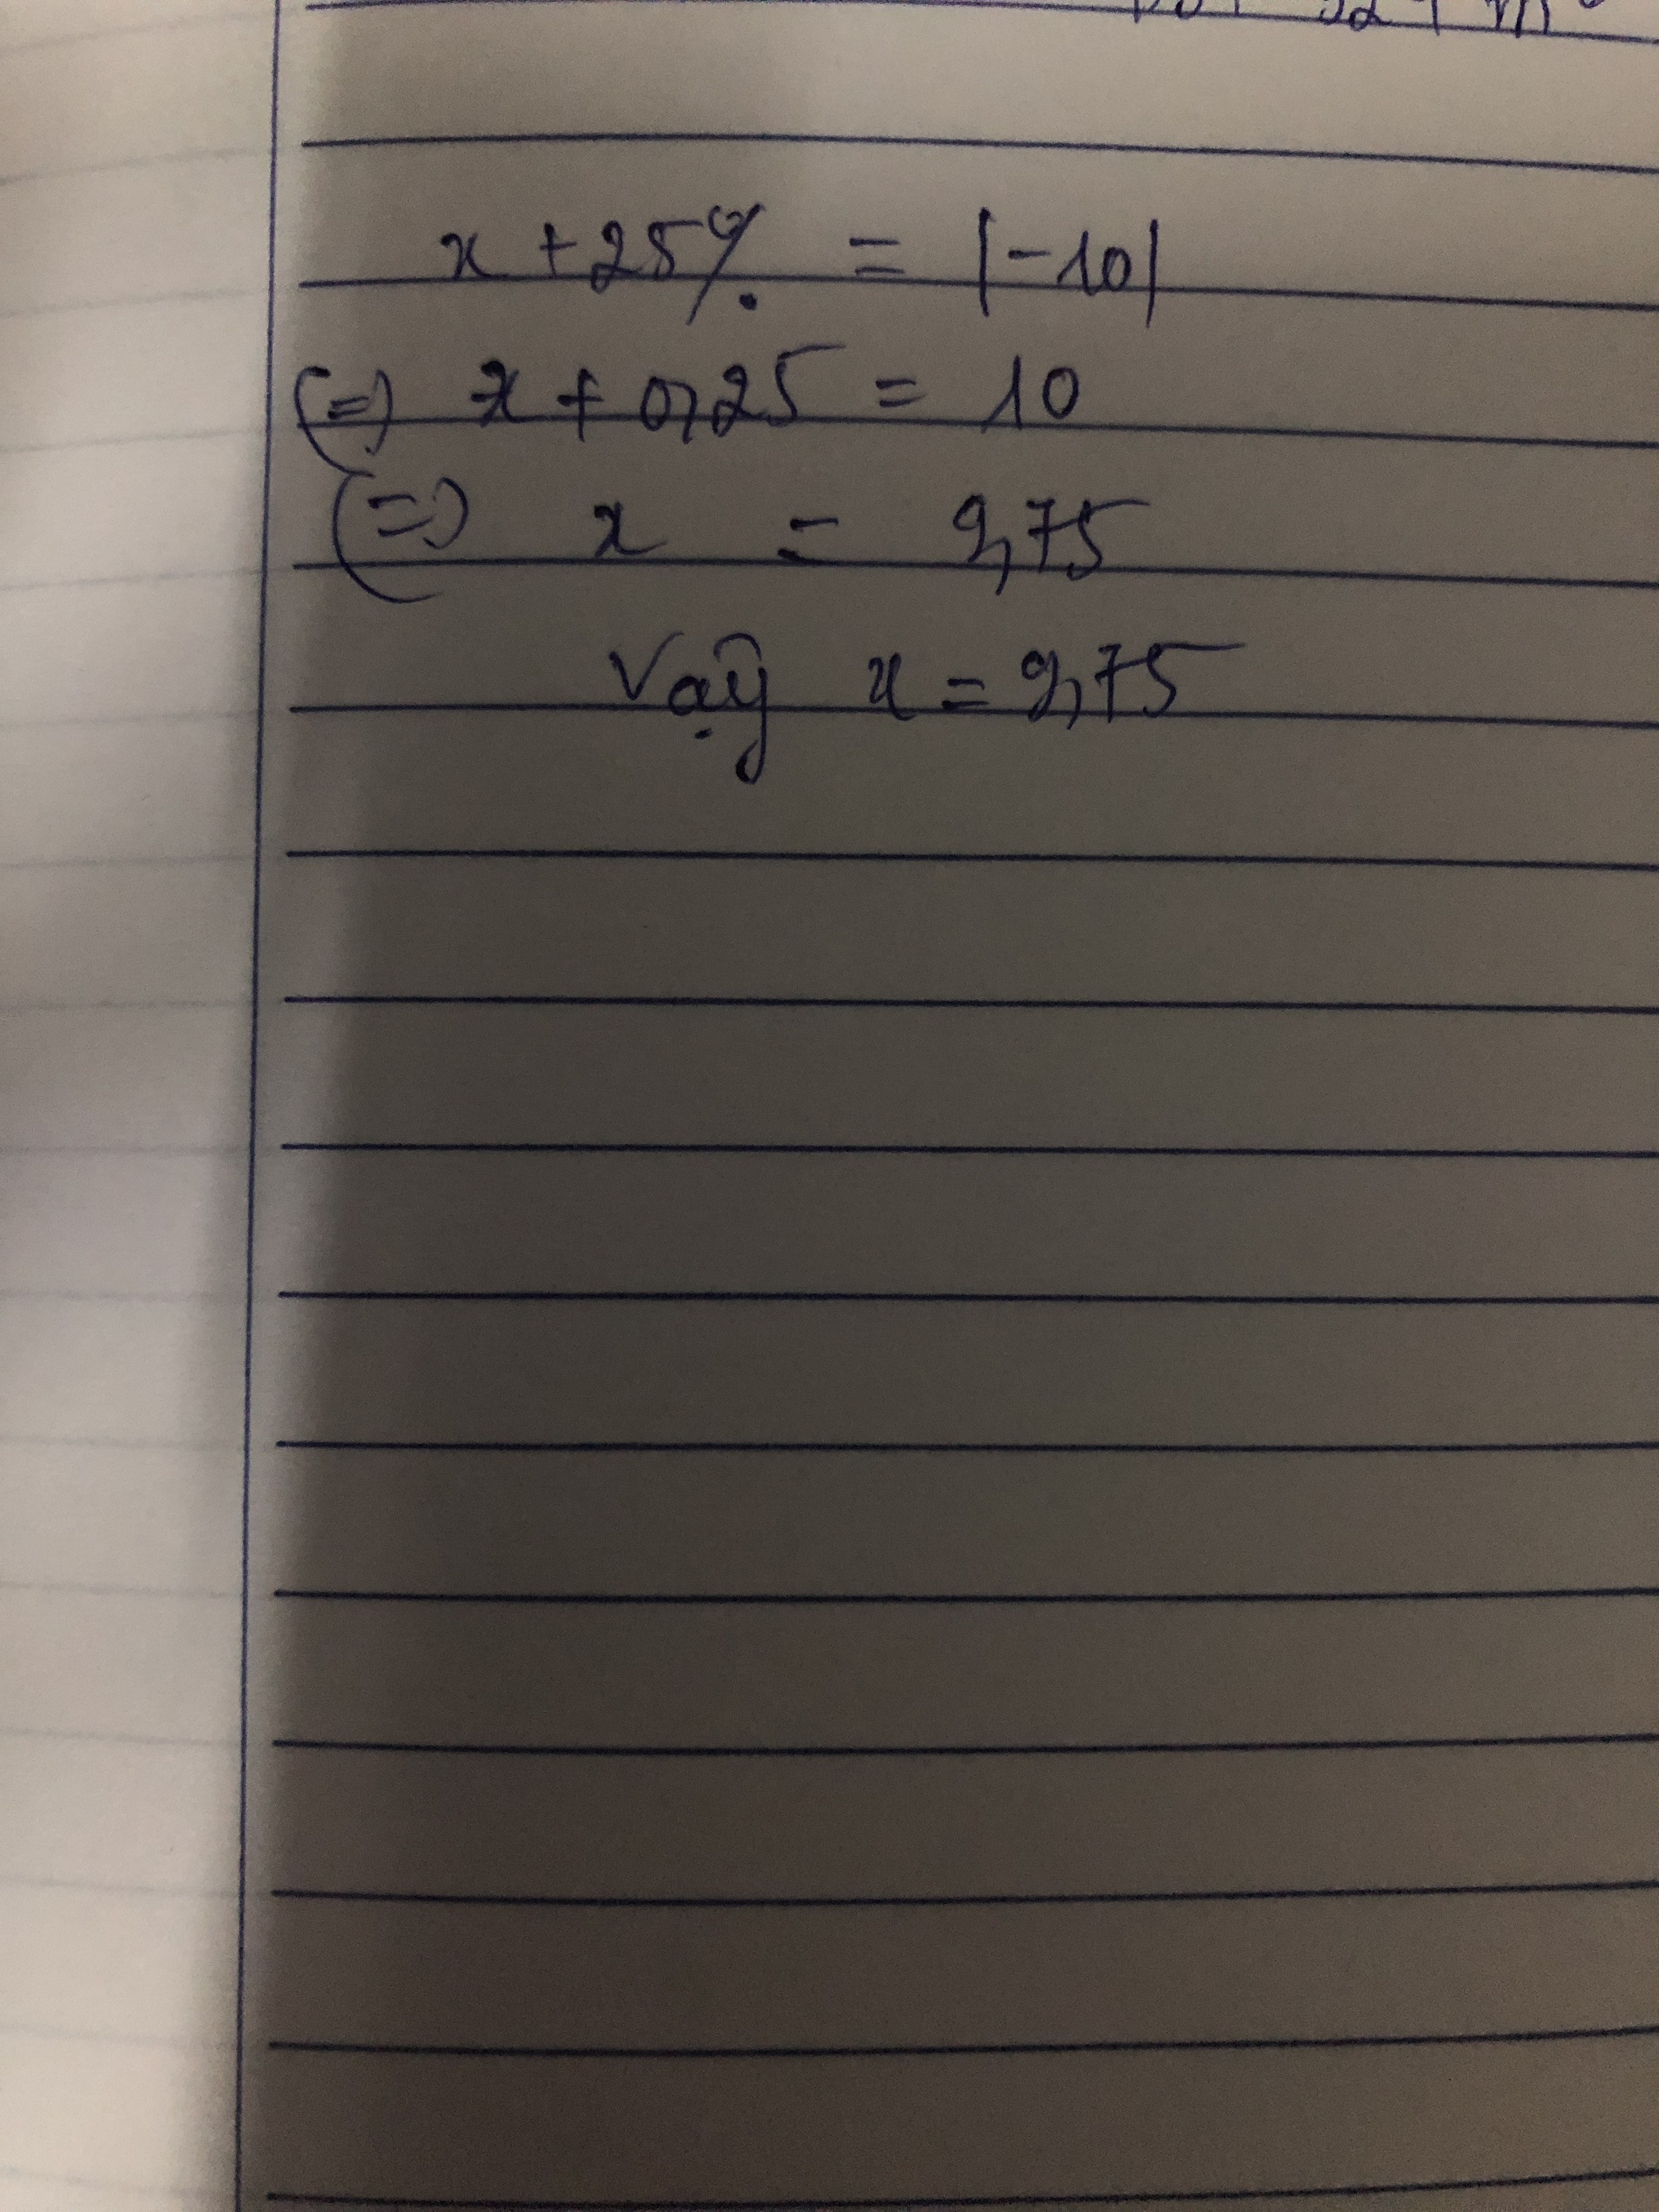 x + 25% = |-10|
(=) x + 0,25 = 10
(=) x = 9,75
Vậy x = 9,75